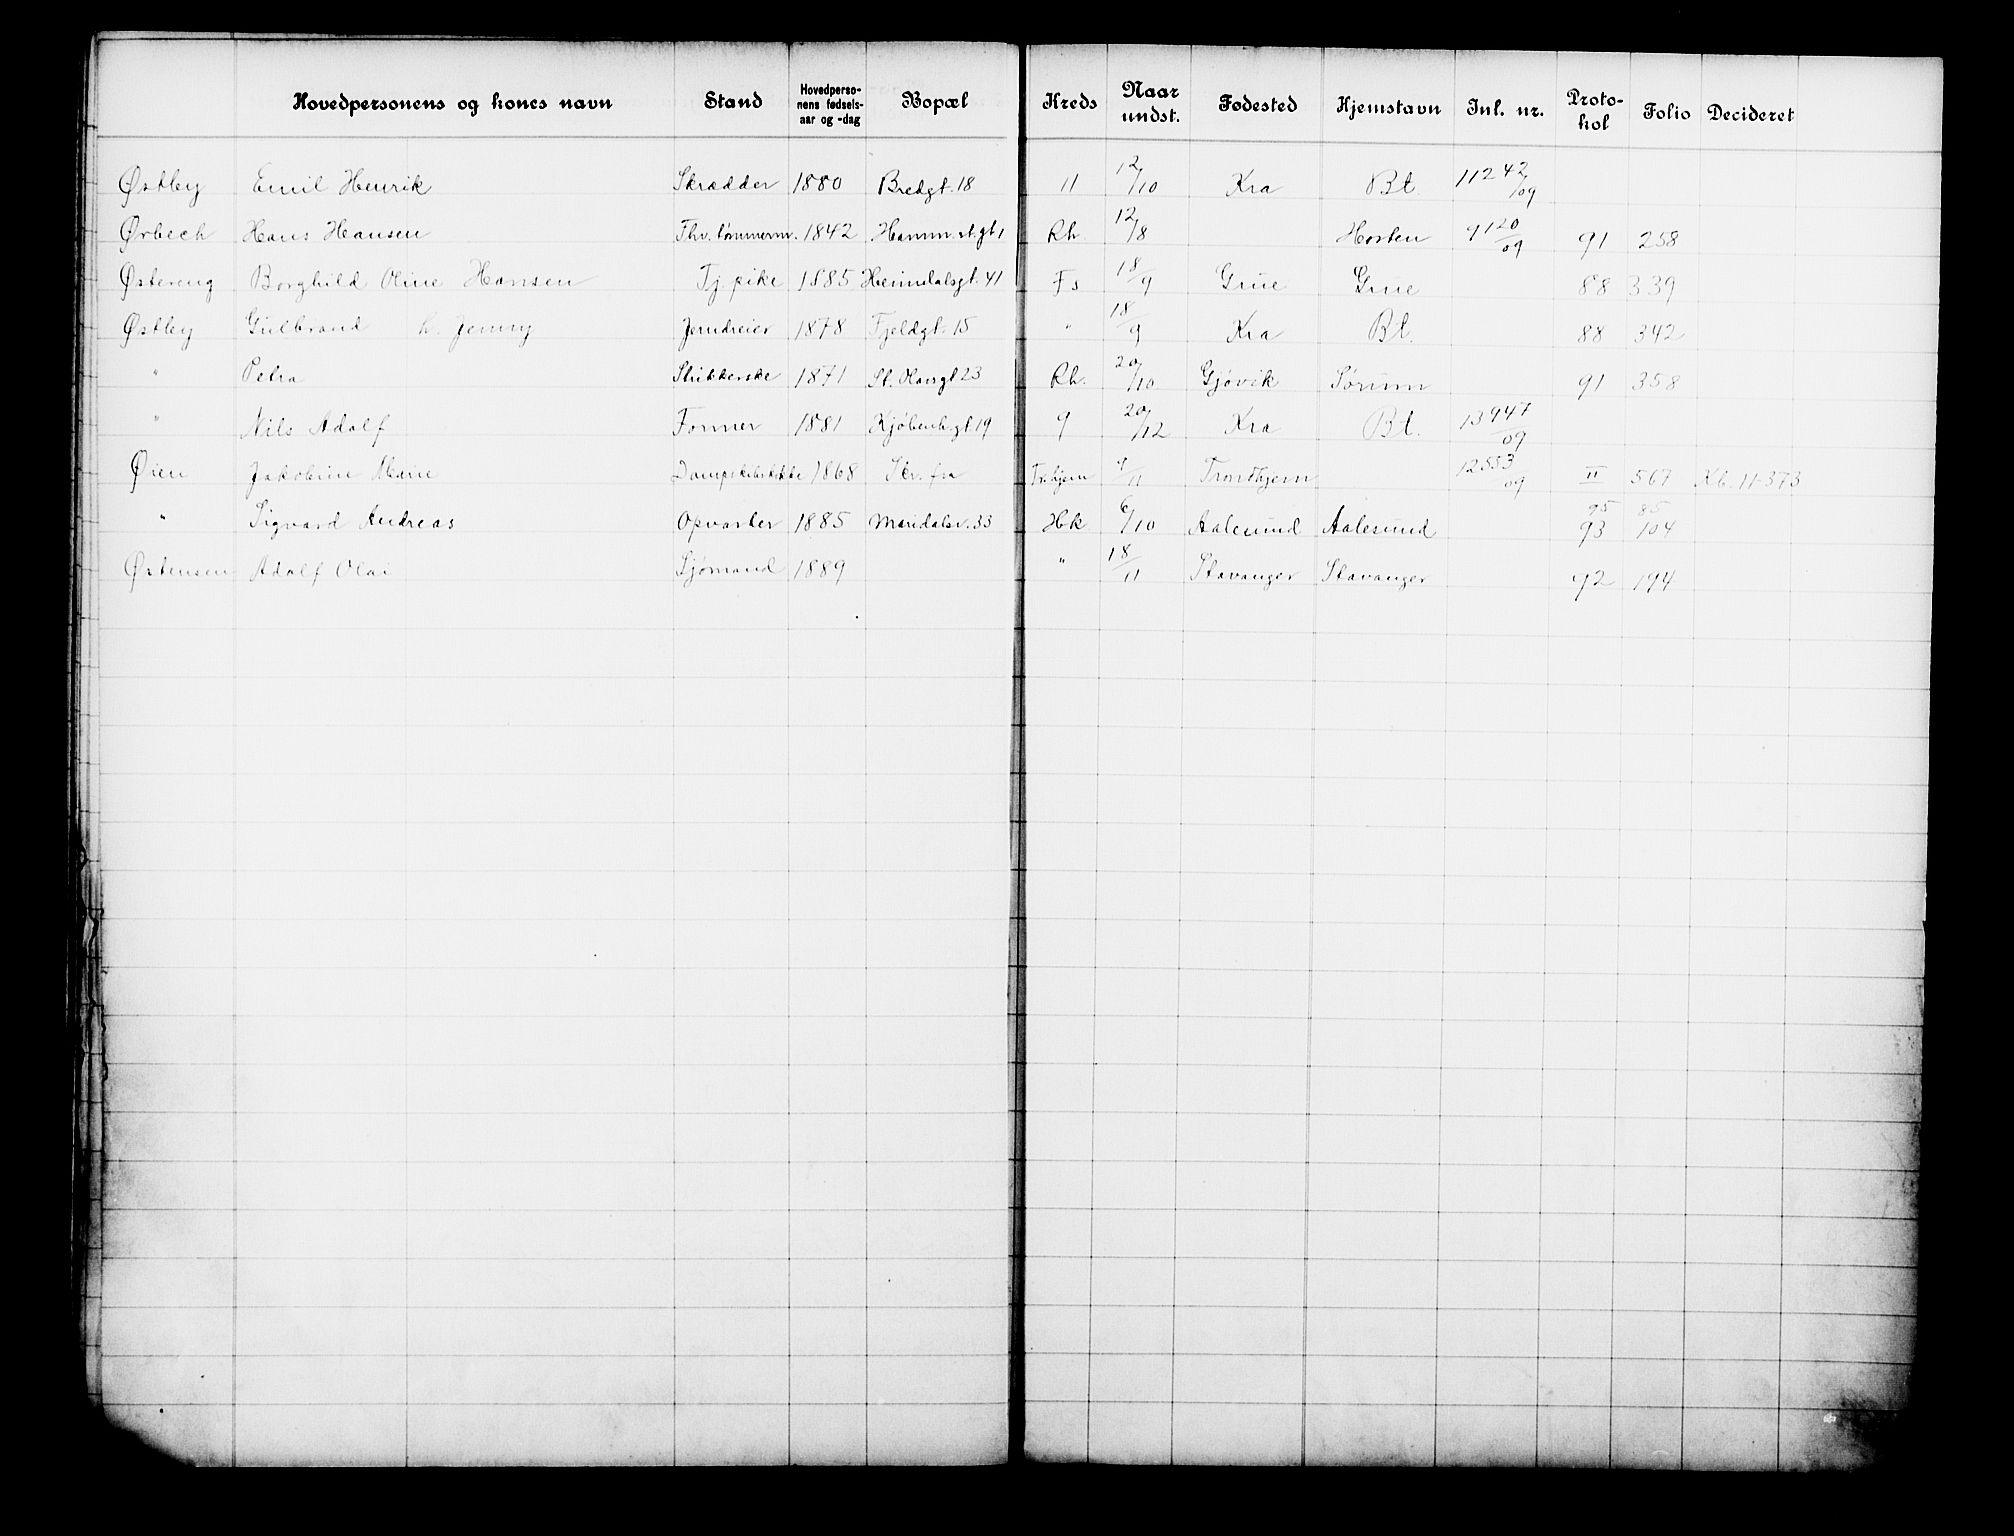 Hovedpersonens og kones navn Stand Hovedperso-nens fødsels-aar og -dag Bopæl Kreds Naar undst. Fødested Hjemstavn Inl. nr. Proto-kol Folio Decideret
Østby Emil Henrik Skrædder 1880 Bredgt. 18 11 12/10 Kra Bt 11242/09
Ørbech Hans Hansen Fhv. tømmerm. 1842 Hamm.st.gt 1 Rh. 12/8 Horten 9120/09 91 258
Østereng Borghild Oline Hansen Tj. pike 1885 Heimdalsgt. 41 Fs 18/9 Grue Grue 88 339
Østby Gulbrand h. Jenny Jerndreier 1878 Fjeldgt. 15 " 18/9 Kra Bt. 88 342
" Petra Strikkerske 1871 St. Olavsgt 23 Rh. 20/10 Gjøvik Sørum 91 358
" Nils Adolf Former 1881 Kjøbenhgt 19 9 20/12 Kra Bt. 13947/09
Øien Jakobine Marie 1868 Skr. fra Tr.hjem 9/11 Trondhjem 12553/09 II 567 Kb. 11-373
" Sigvard Andreas Opvarter 1885 Maridalsv. 33 Hk 6/10 Aalesund Aalesund 95 93 85 104
Østensen Adolf Olai Sjømand 1889 " 18/11 Stavanger Stavanger 92 194